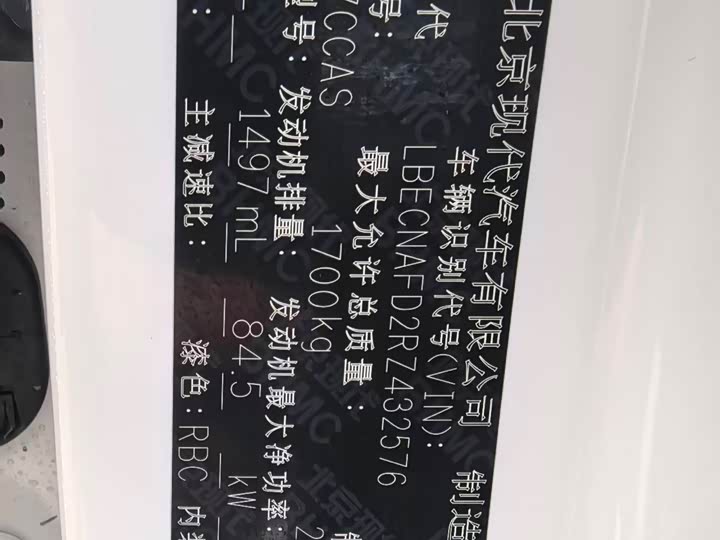 北京现代汽车有限公司 制造
车辆识别代号(VIN):
LBECNAFD2RZ432576
代
号:
最大允许总质量:
7CCAS
1700kg
型号: 发动机排量: 发动机最大净功率:
1497 mL 84.5 kW
主减速比: 漆色: RBC 内